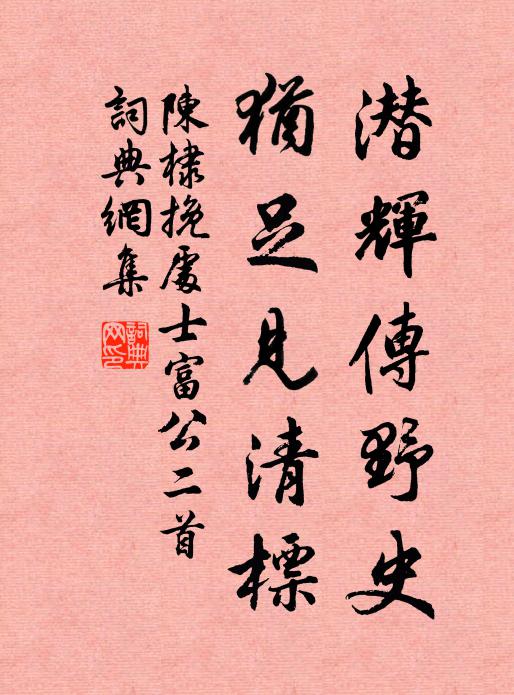 潜輝傳野史
猶足見清標
陳棣挽處士富公二首
詞典網集
詞典网印